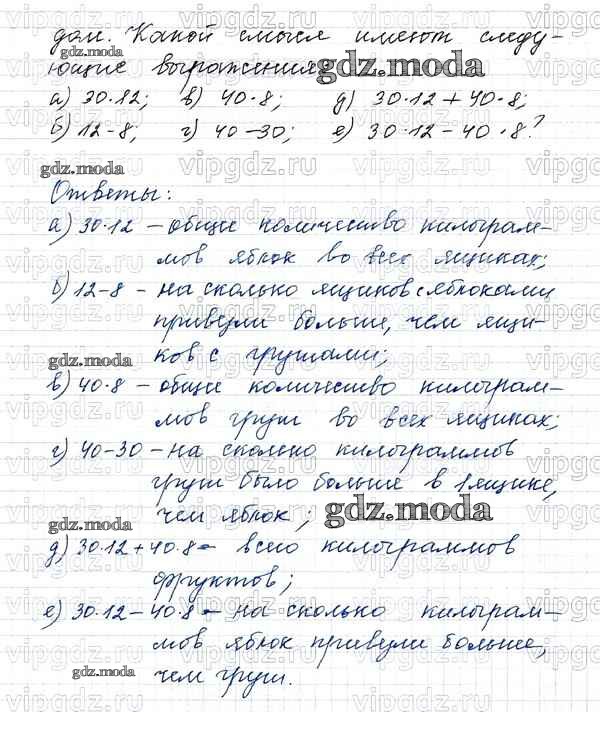 дом. Какой смысл имеют следу-
ющие выражения:
gdz.moda
а) 30·12; в) 40·8; д) 30·12+40·8;
б) 12-8; г) 40-30; е) 30·12-40·8?
gdz.moda
Ответы:
а) 30·12 - общие количество килограм-
мов яблок во всех ящиках;
б) 12-8 - на сколько ящиков с яблоками
привезли больше, чем ящи-
gdz.moda
ков с грушами;
в) 40·8 - общие количество килограм-
мов груш во всех ящиках;
г) 40-30 - на сколько килограммов
груш было больше в 1 ящике,
чем яблок;
gdz.moda
gdz.moda
д) 30·12+40·8 - всего килограммов
фруктов;
е) 30·12-40·8 - на сколько килограм-
мов яблок привезли больше,
gdz.moda
чем груш.
vipgdz.ru